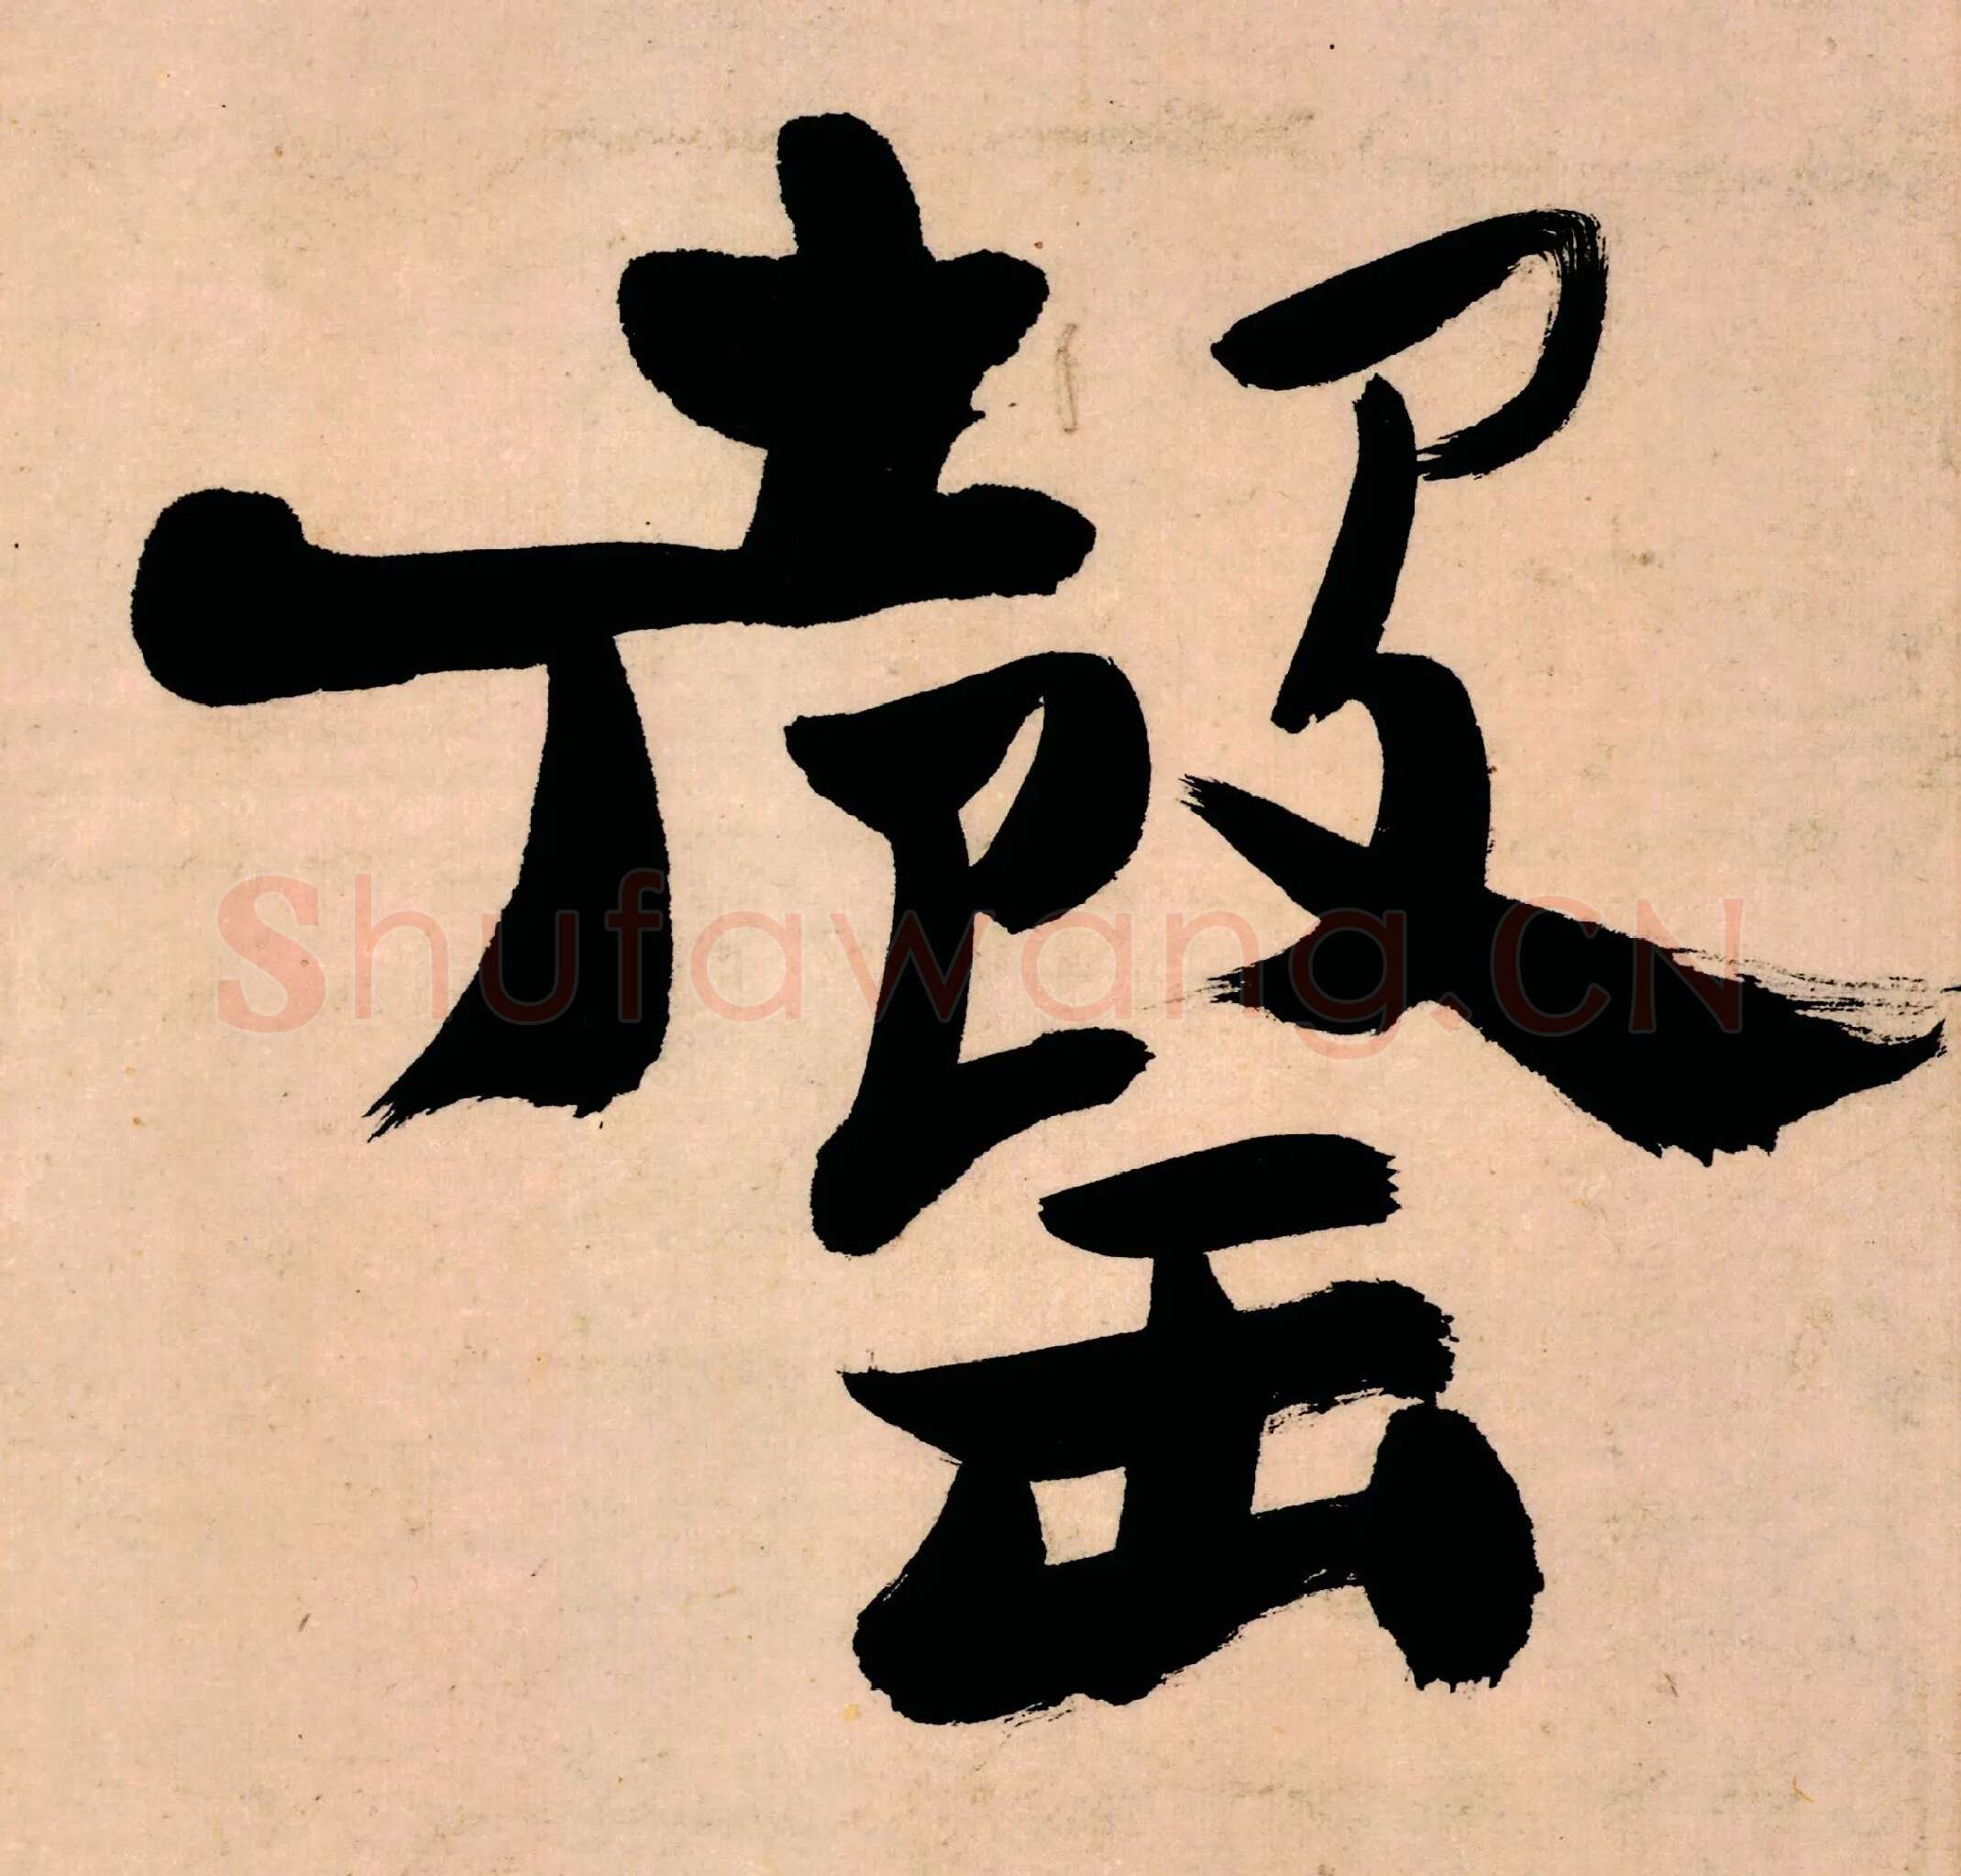 罄
Shufawang.CN